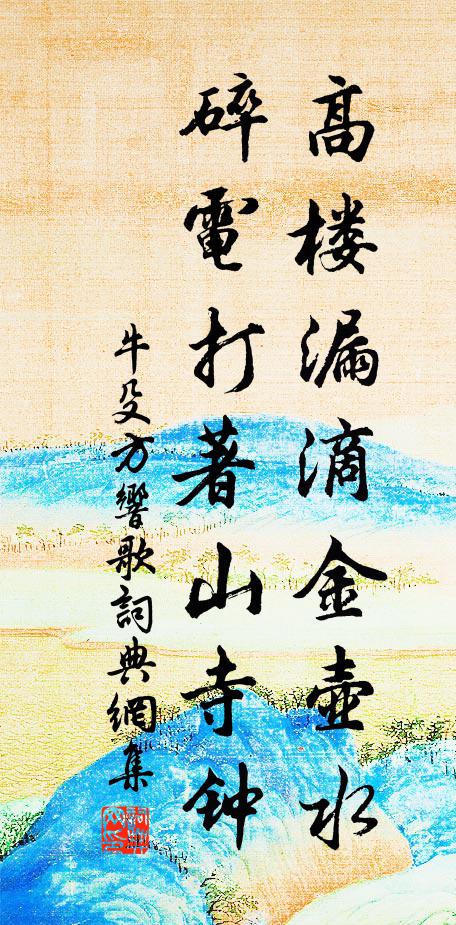 高楼漏滴金壺水
碎電打著山寺钟
牛殳方響歌詞典網集